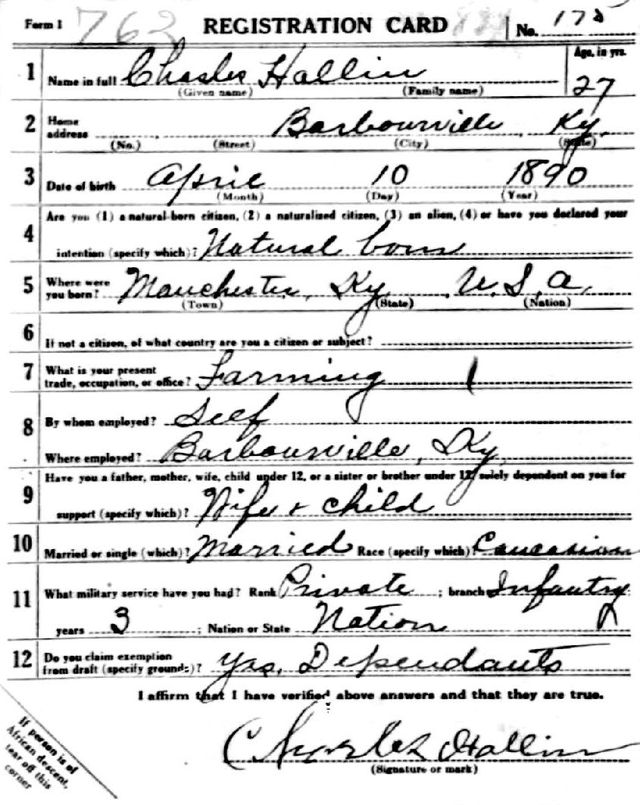 Form 1 763 REGISTRATION CARD No. 175
Age, in yrs.
1 Name in full Charles Hallin 27
(Given name) (Family name)
2 Home address Barbourville Ky.
(No.) (Street) (City) (State)
3 Date of birth April 10 1890
(Month) (Day) (Year)
Are you (1) a natural-born citizen, (2) a naturalized citizen, (3) an alien, (4) or have you declared your
4 intention (specify which)? Natural born
5 Where were you born? Manchester, Ky U.S.A.
(Town) (State) (Nation)
6 If not a citizen, of what country are you a citizen or subject?
7 What is your present trade, occupation, or office? Farming
8 By whom employed? Self
Where employed? Barbourville, Ky.
Have you a father, mother, wife, child under 12, or a sister or brother under 12, solely dependent on you for
9 support (specify which)? Wife + child
10 Married or single (which)? Married Race (specify which)? Caucasian
11 What military service have you had? Rank Private ; branch Infantry
years 3 ; Nation or State Nation
12 Do you claim exemption from draft (specify grounds)? Yes, Dependants
I affirm that I have verified above answers and that they are true.
Charles Hallin
(Signature or mark)
If person is of
African descent,
tear off this
corner